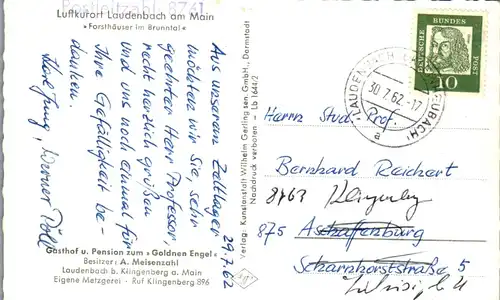 Postleitzahl 8761
Luftkurort Laudenbach am Main
"Forsthäuser im Brunntal"
Aus unserem Zeltlager 29.7.62
möchten wir Sie, sehr
geehrter Herr Professor,
recht herzlich grüßen
und uns noch einmal für
Ihre Gefälligkeit be-
danken.
Karl Jung, Werner
Gasthof u. Pension zum »Goldnen Engel«
Besitzer: A. Meisenzahl
Laudenbach b. Klingenberg a. Main
Eigene Metzgerei - Ruf Klingenberg 896
Verlag: Kunstanstalt Wilhelm Gerling sen GmbH., Darmstadt
Nachdruck verboten — Lb 1644/2
DEUTSCHE BUNDESPOST
10
LAUDENBACH
30.7.62-17
a
Herrn Stud. Prof.
Bernhard Reichert
8763 Klingenberg
875 Aschaffenburg
Scharnhorststraße 5